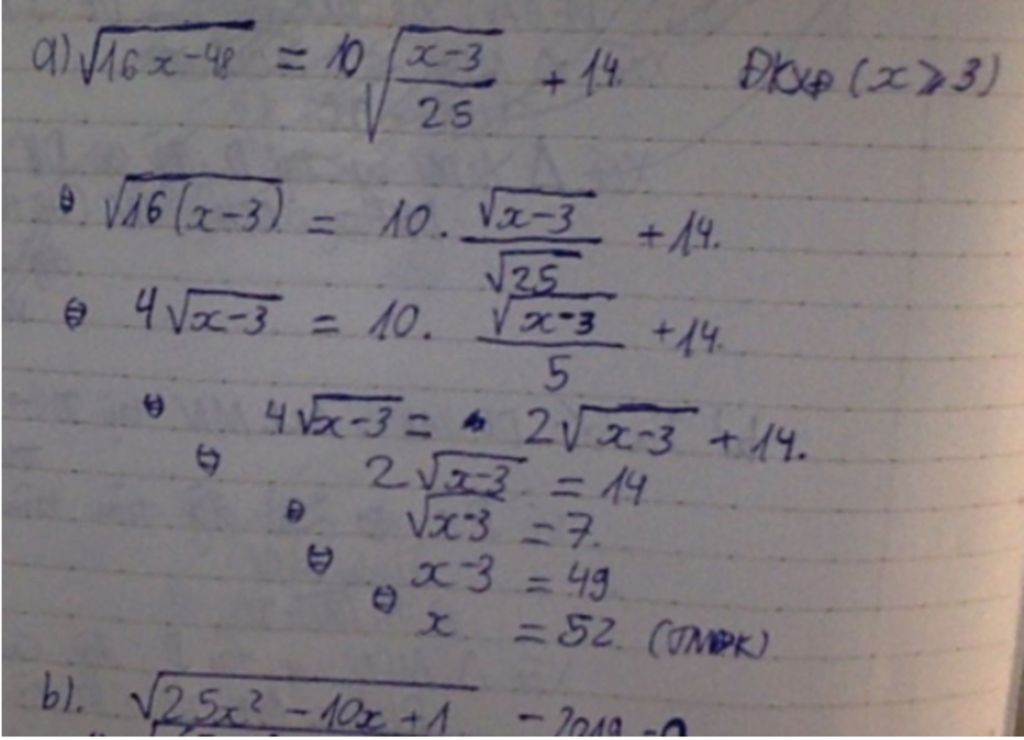 a) √(16x-48) = 10 √((x-3)/25) + 14. ĐKXĐ (x ≥ 3)
⇔ √(16(x-3)) = 10. √(x-3)/√25 + 14.
⇔ 4√(x-3) = 10. √(x-3)/5 + 14.
⇔ 4√(x-3) = 2√(x-3) + 14.
⇔ 2√(x-3) = 14
⇔ √(x-3) = 7.
⇔ x-3 = 49
⇔ x = 52. (TMĐK)
b). √(25x² - 10x + 1) - 2019 = 0